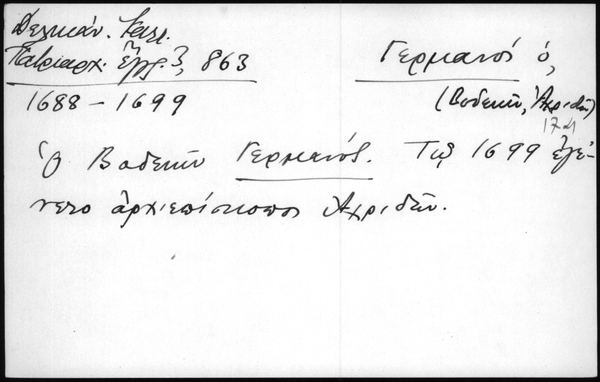 Δελικάν. Καλλ.
Πατριαρχ. ἔγγρ. 3, 863
1688 – 1699
Γερμανός ὁ,
(Βοδενῶν, Ἀχριδῶν)
Ὁ Βοδενῶν Γερμανός. Τῷ 1699 ἐγέ-
νετο ἀρχιεπίσκοπος Ἀχριδῶν.